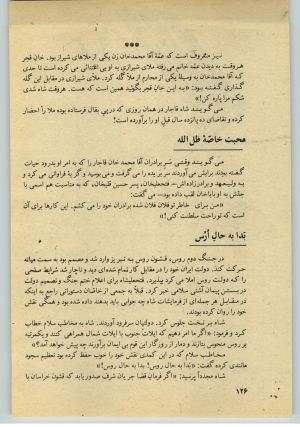 ***
نیز معروف است که عمّهٔ آقا محمدخان زن یکی از ملاهای شیراز بود. خان قجر
هر وقت به دیدن عمّه خانم می‌رفته ملای شیرازی به او بی‌اعتنائی می‌کرده است تا حدی
که آقا محمدخان به وسیلهٔ یکی از محارم از ملا گله کرد. ملای شیرازی در مقابل این گله
گذاری گفته بود: «به این خان قجر بگویید همین است که هست. هروقت شاه شدی
شکم مرا پاره کن!»
می‌گویند شاه قاجار در همان روزی که در پی بقال فرستاده بوده ملا را احضار
کرده و تقاضای ده پانزده سال قبل او را برآورده است!
محبت خاصهٔ ظل الله
می‌گویند وقتی سر برادران آقا محمد خان قاجار را که به امر او بدرود حیات
گفته بودند برایش می‌آوردند سر بریده را می‌گرفت و می‌بوسید و گریهٔ فراوانی می‌کرد و
به ولیعهد و برادرزاده‌اش — فتحعلیخان، پسر حسین قلیخان، که به مناسبت هم اسمی با
جدش به او باباخان لقب داده بود — می‌گفت:
«برای خاطر تو فلان فلان شده برادران خود را می‌کشم. این کارها برای آن
است که تو راحت سلطنت کنی!»
بَدا به حالِ اُرُس
در جنگ دوم روس، قشون روس به تبریز وارد شد و مصمم بود به سمت میانه
حرکت کند. دولت ایران خود را در مقابل کار تمام شده‌ای دید و ناچار شد شرایط صلحی
را که دولت روس املا می‌کرد بپذیرد. فتحعلیشاه برای اعلام ختم جنگ و تصمیم دولت
در بستن پیمان آشتی سلامی خبر کرد. قبلاً به جمعی از خاصّان دستوراتی راجع به اینکه
در مقابل هر جمله‌ای از فرمایشات شاه چه جوابی باید بدهند داده شده بود و همگی نقش
خود را روان کرده بودند.
شاه بر تخت جلوس کرد. دولتیان سرفرود آوردند. شاه به مخاطب سلام خطاب
کرد و فرمود: «اگر ما امر دهیم که ایلات جنوب با ایلات شمال همراهی کنند و یکمرتبه
بر روس منحوس بتازند و دمار از روزگار این قوم بی ایمان برآرند چه پیش خواهد آمد؟»
مخاطب سلام که در این کمدی نقش خود را خوب حفظ کرده بود تعظیم سجود
مانندی کرده گفت: «بَدا به حال روس! بَدا به حال روس!»
شاه مجدداً پرسید: «اگر فرمان قضا جریان شرف صدور یابد که قشون خراسان با
۱۲۶